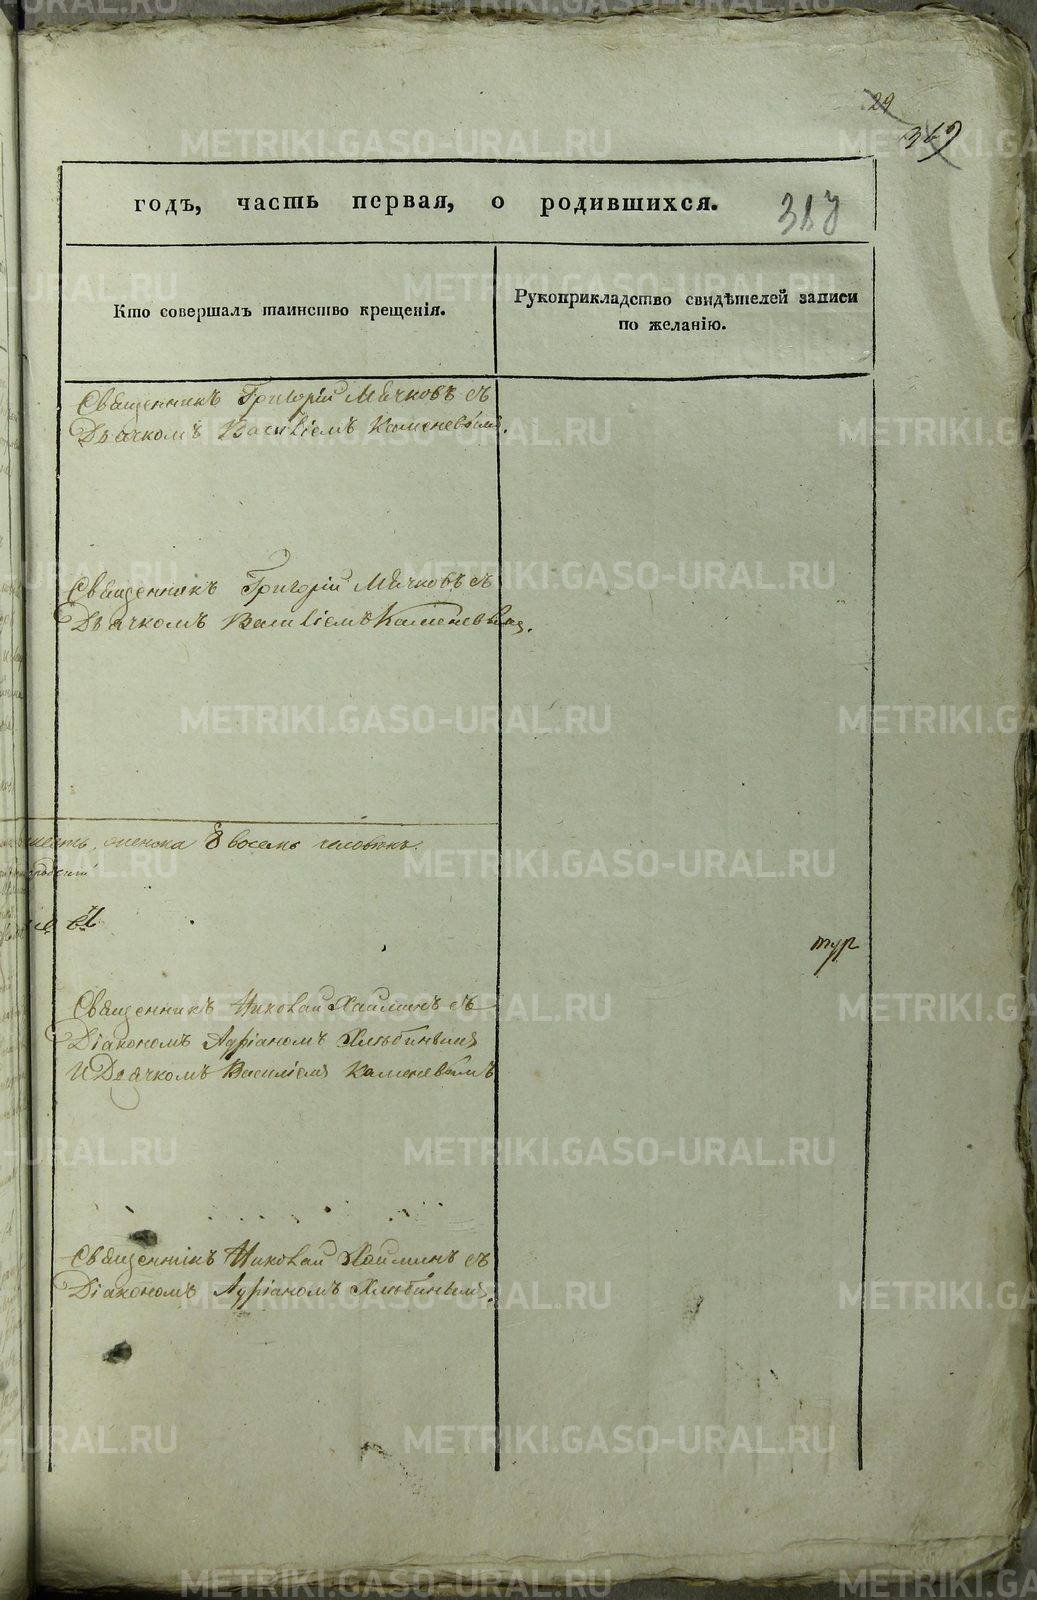 29
годъ, часть первая, о родившихся.
Кто совершалъ таинство крещенія.
Рукоприкладство свидѣтелей записи
по желанію.
Священникъ Григорій Мячковъ съ
Дьячкомъ Василіемъ Каменевымъ.
Священникъ Григорій Мячковъ съ
Дьячкомъ Василіемъ Каменевымъ.
женска 8 восемь человѣкъ.
Священникъ Николай Хайминъ съ
Діакономъ Адріаномъ Хлюбинымъ
И Дьячкомъ Василіемъ Каменевымъ
Священникъ Николай Хайминъ съ
Діакономъ Адріаномъ Хлюбинымъ.
METRIKI.GASO-URAL.RU